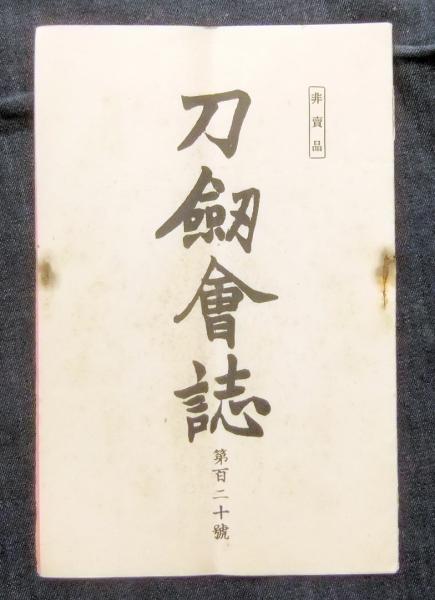 非賣品
刀劔會誌
第百二十號